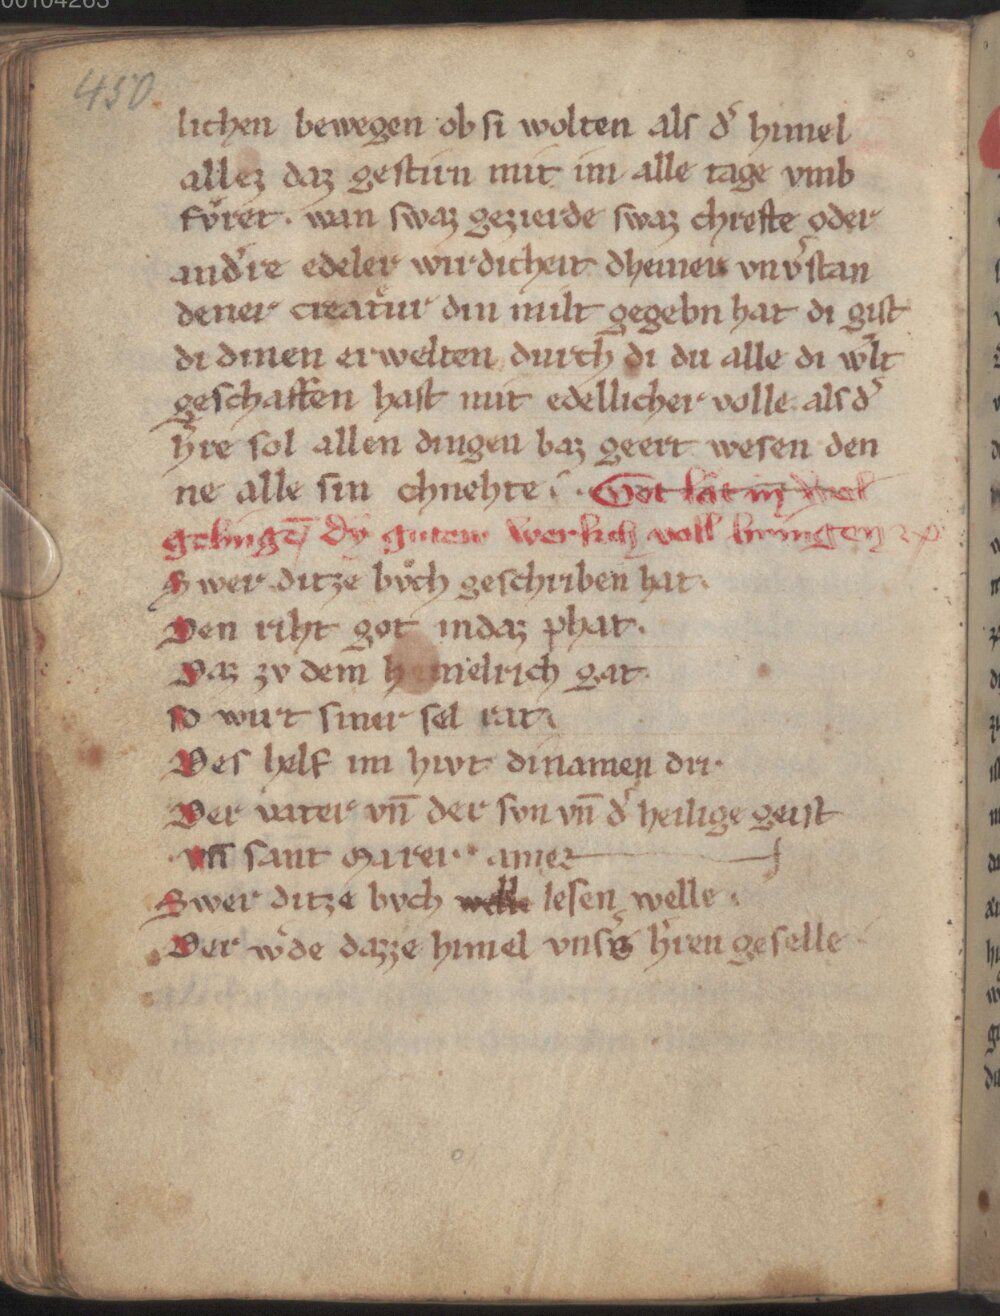 00104263
450
lichen bewegen ob si wolten als d͛ himel
allez daz gestirn mit im alle tage vmb
fvͦret · wan swaz gezierde swaz chrefte oder
and͛re edeler wirdicheit dheiner vnv͛stan
dener creatûr din milt gegebn hat di gist
di dinen erwelten durch di du alle di w͛lt
geschaffen hast mit edellicher volle als d͛
h͛re sol allen dingen baz geert wesen den
ne alle sin chnehte · Got lat in wol
gelingē dy guten werlich voll bringen
Swer ditze bvͦch geschriben hat ·
Den riht got indaz phat ·
Daz zv dem himelrich gat ·
so wirt siner sel rat ·
Des helf im hivt dinamen dri ·
Der vater vn̄ der svn vn̄ d͛ heilige geist
vn̄ sant marei · amen
Swer ditze bvch welle lesen welle ·
Der w͛de dazze himel vnsers h͛ren geselle